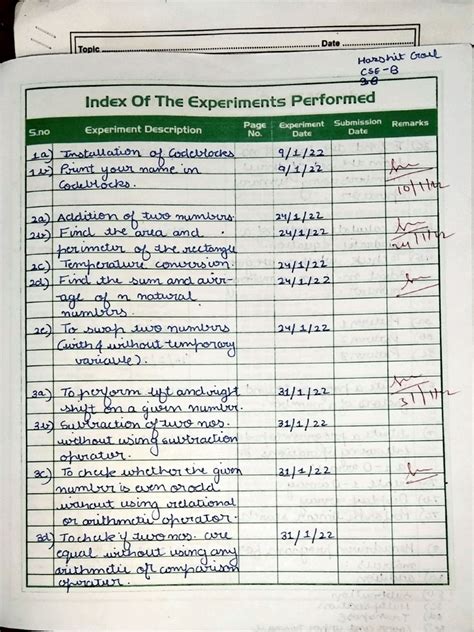 Topic
Date
Harshit
CSE-B
Index Of The Experiments Performed
S.no Experiment Description Page No. Experiment Date Submission Date Remarks
1a) Installation of Codeblocks 9/1/22
1b) Print your name in 9/1/22
Codeblocks.
10/1/22
2a) Addition of two numbers. 24/1/22
2b) Find the area and 24/1/22
perimeter of the rectangle
24/1/22
2c) Temperature conversion. 24/1/22
2d) Find the sum and aver- 24/1/22
age of n natural
numbers.
2e) To swap two numbers 24/1/22
(with & without temporary
variable).
3a) To perform left and right 31/1/22
shift on a given number.
31/1/22
3b) Subtraction of two nos. 31/1/22
without using subtraction
operator.
3c) To check whether the given 31/1/22
number is even or odd
without using relational
or arithmetic operator.
3d) To check if two nos. are 31/1/22
equal without using any
arithmetic or comparison
operator.